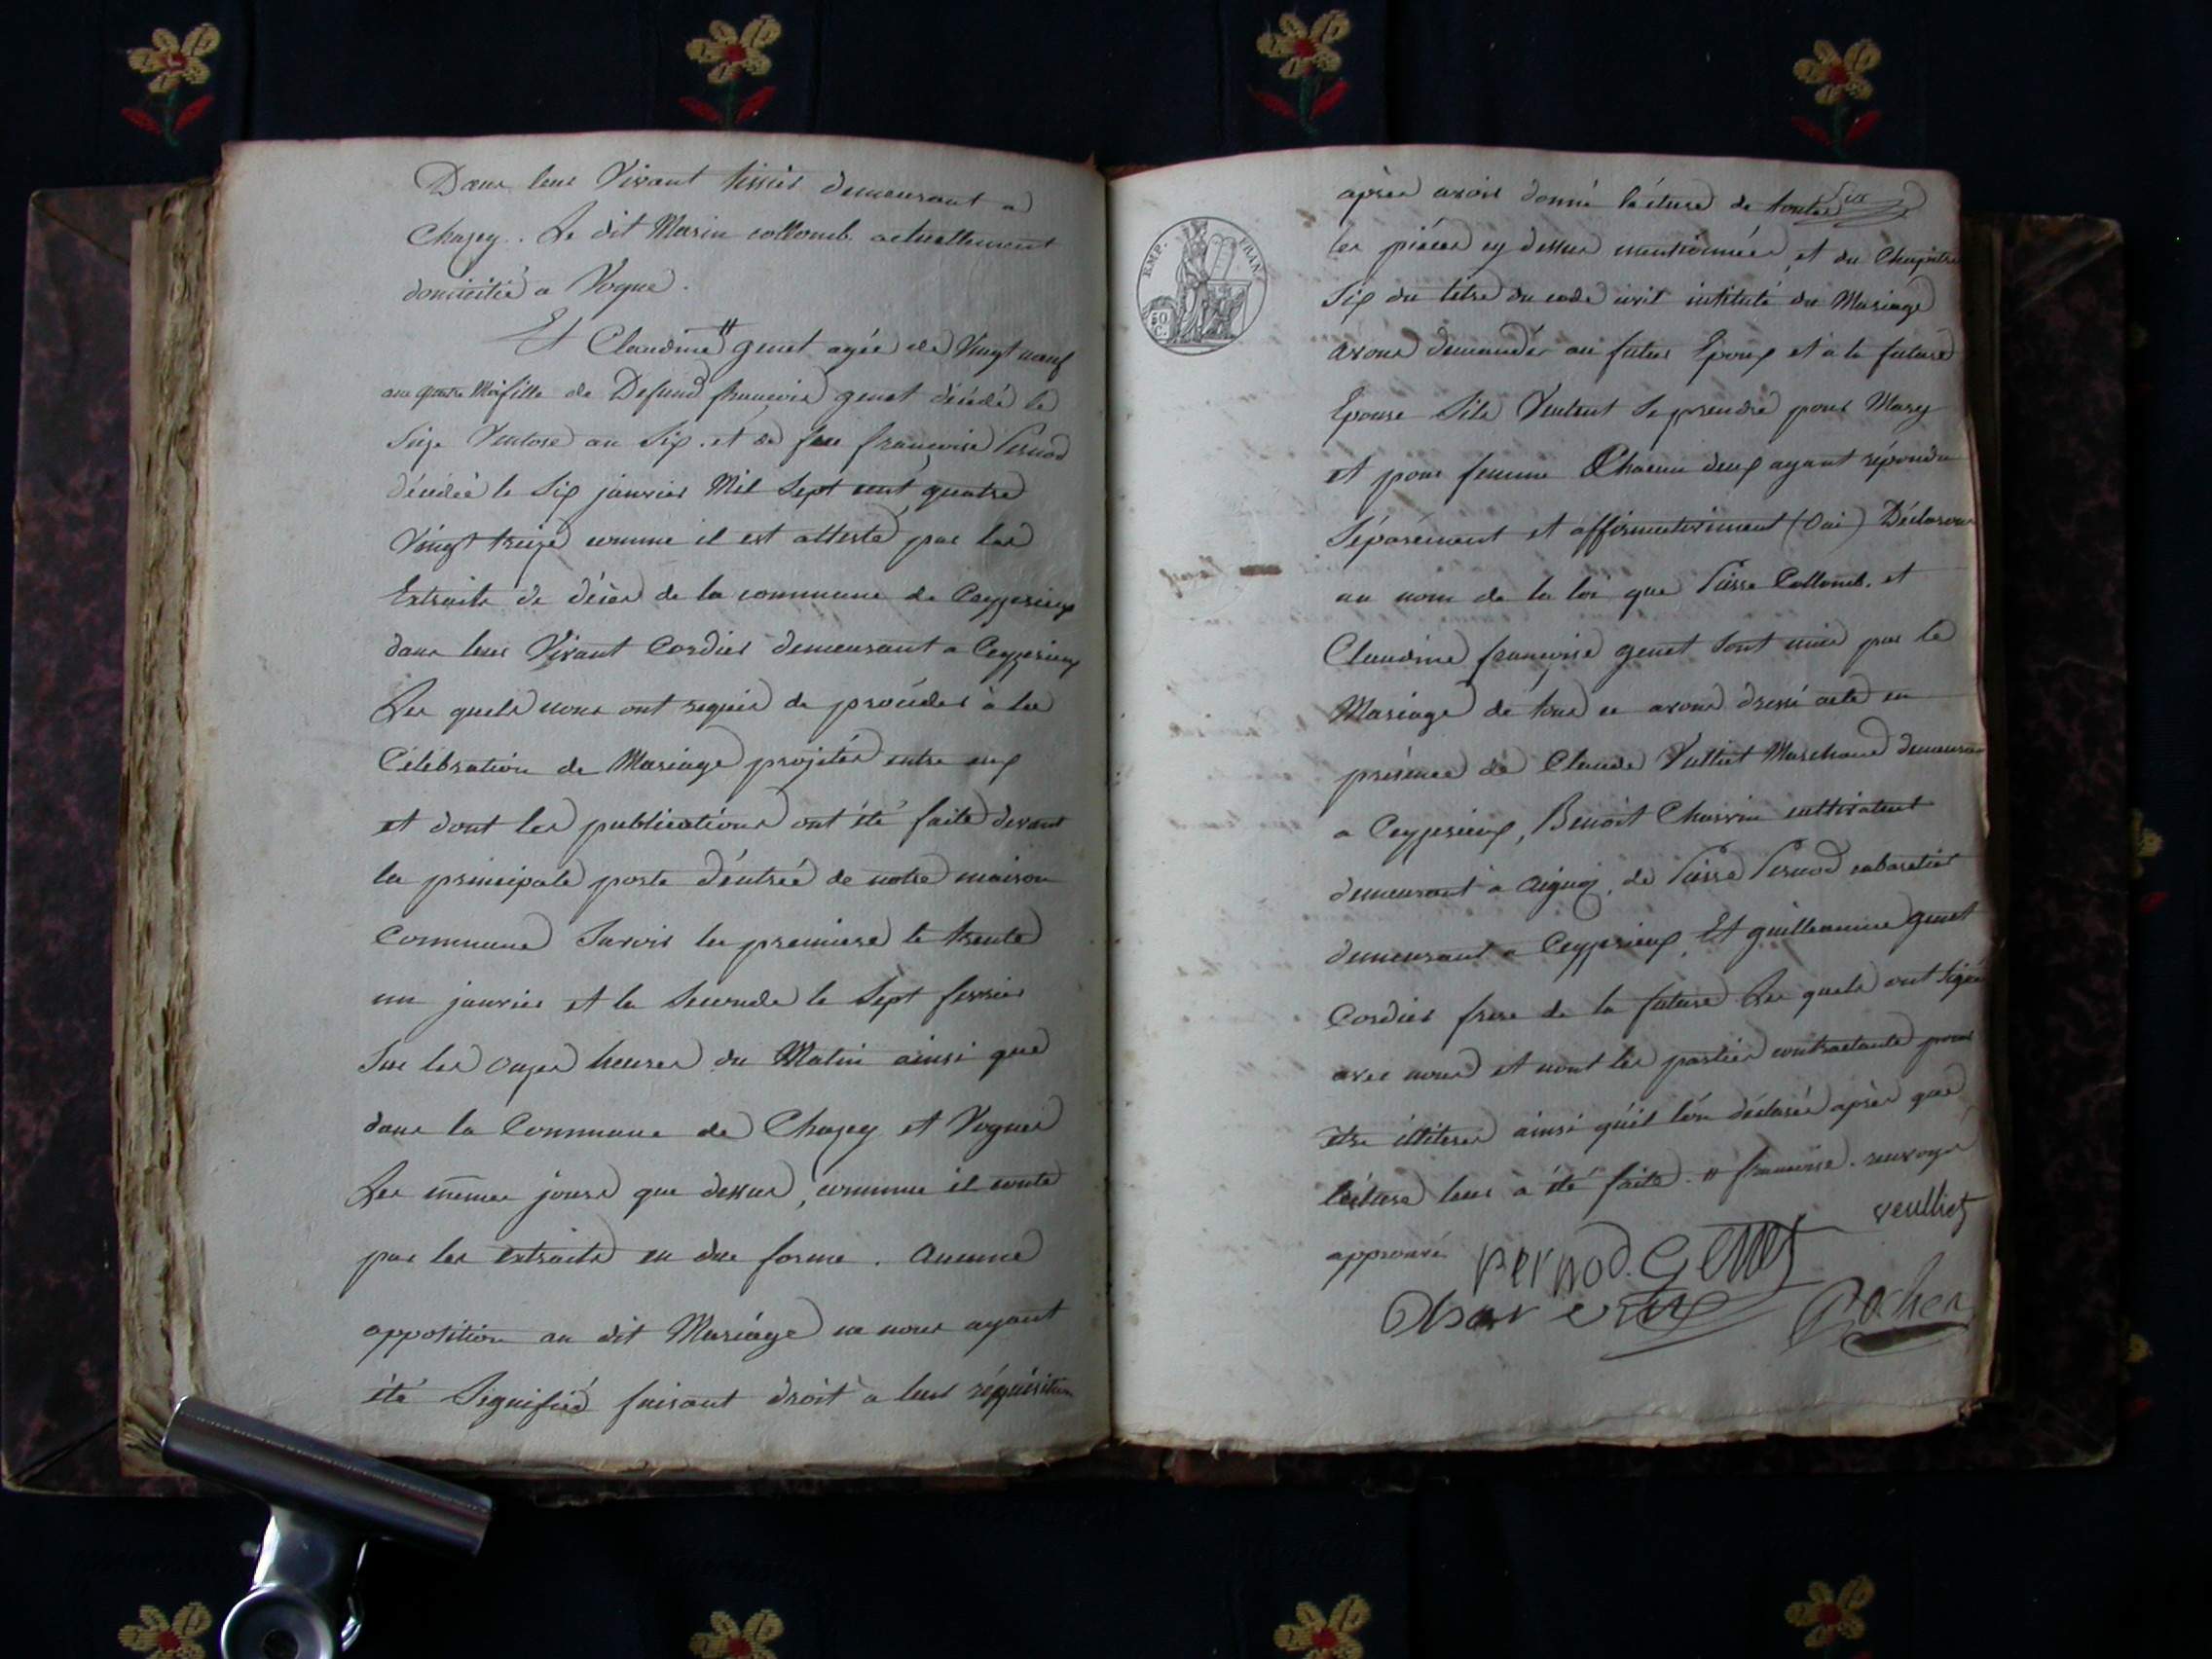 Dans leur Vivant tissier demeurant a
Chazey. Le dit Marin collomb. actuellement
domicilié a Vogne.
Et Claudine " genet agée de Vingt neuf
ans quatre Mois fille de Defund françois genet décédé le
Seize Ventose an Six. et de feu françoise Pernod
décédée le Six janvier Mil Sept cent quatre
Vingt treize comme il est attesté par les
Extraits de décès de la commune de Ceyzerieux
dans leur Vivant Cordier demeurant a Ceyzerieux
Les quels nous ont requis de procéder à la
Célébration de Mariage projetés entre eux
et dont les publications ont été faite devant
la principale porte d'éntrée de notre maison
Commune Savoir la premiere le trente
un janvier et la Seconde le Sept fevrier
Sur les onzes heures du Matin ainsi que
dans la Commune de Chazey et Vognes
Les mêmes jours que dessus, comme il conte
par les extraits en due forme. Aucune
oppotition au dit Mariage ne nous ayant
été Signifiée faisant droit a leur réquisition
Six
après avoir donné lécture de toutes
les pièces cy dessus mentionnées et du Chapitre
Six du titre du code civil intitulé du Mariage
avons demander au futur Epoux et à la future
Epouse Sils Veulent Se prendre pour Mary
et pour femme Chacun deux ayant répondu
Séparément et affirmativement (Oui) Déclarons
au nom de la loi que Pierre Collomb. et
Claudine françoise genet Sont unis par le
Mariage de tous ce avons dressé acte en
présence de Claude Vulliet Marchand demeurant
a Ceyzerieux, Benoit Charvin cultivateur
demeurant à Aignoz, de Pierre Pernod cabaretier
demeurant a Ceyzerieux, Et guillaumme genet
Cordier frere de la future Les quels ont signé
avec nous et nont les parties contractante pour
etre illiteré ainsi quil lon déclarée après que
lécture leur à été faite. " françoise. renvoyé
approuvé
veulliet
pernod. Genet
Rocher